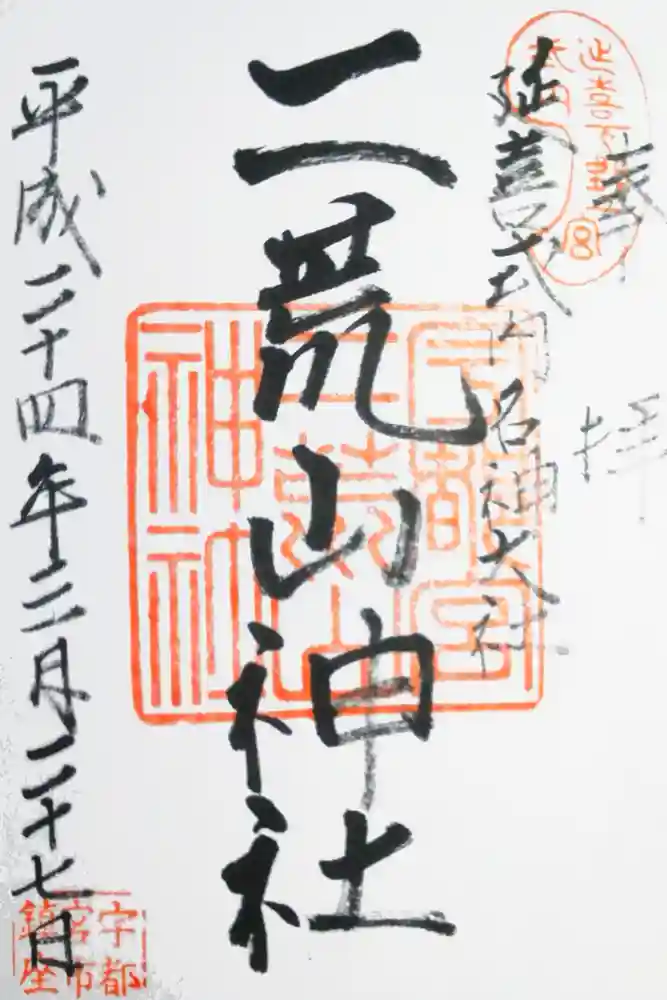 奉拝
延喜式内名神大社
二荒山神社
平成二十四年三月二十七日
宇都宮
二荒山
神社
宇都
宮市
鎮座